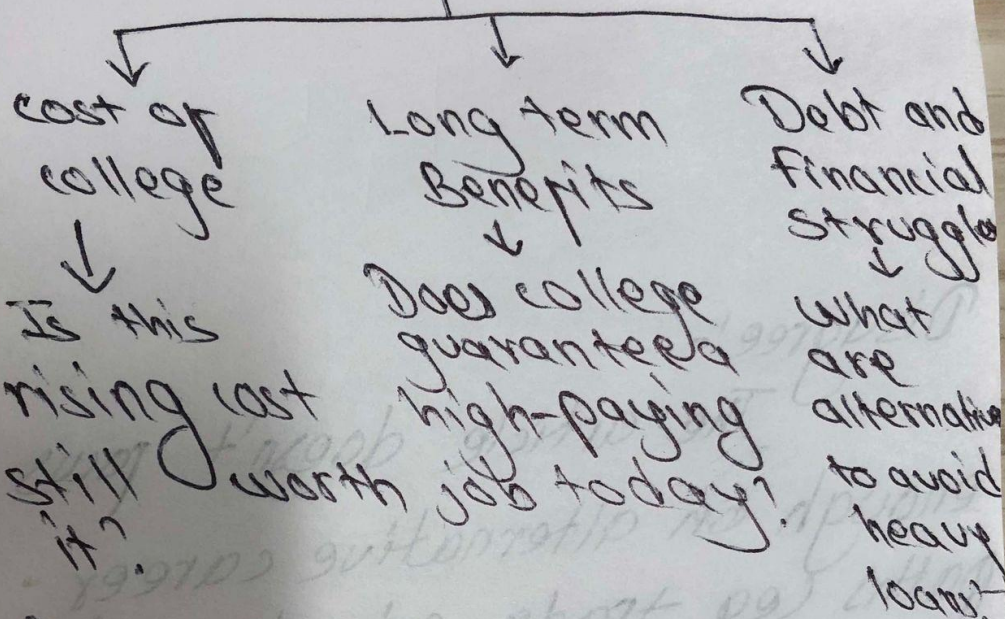 Cost of
college
Is this
rising cost
still worth
it?
Long term
Benefits
Does college
guarantee a
high-paying
job today?
Debt and
Financial
Struggle
What
are
alternative
to avoid
heavy
loans